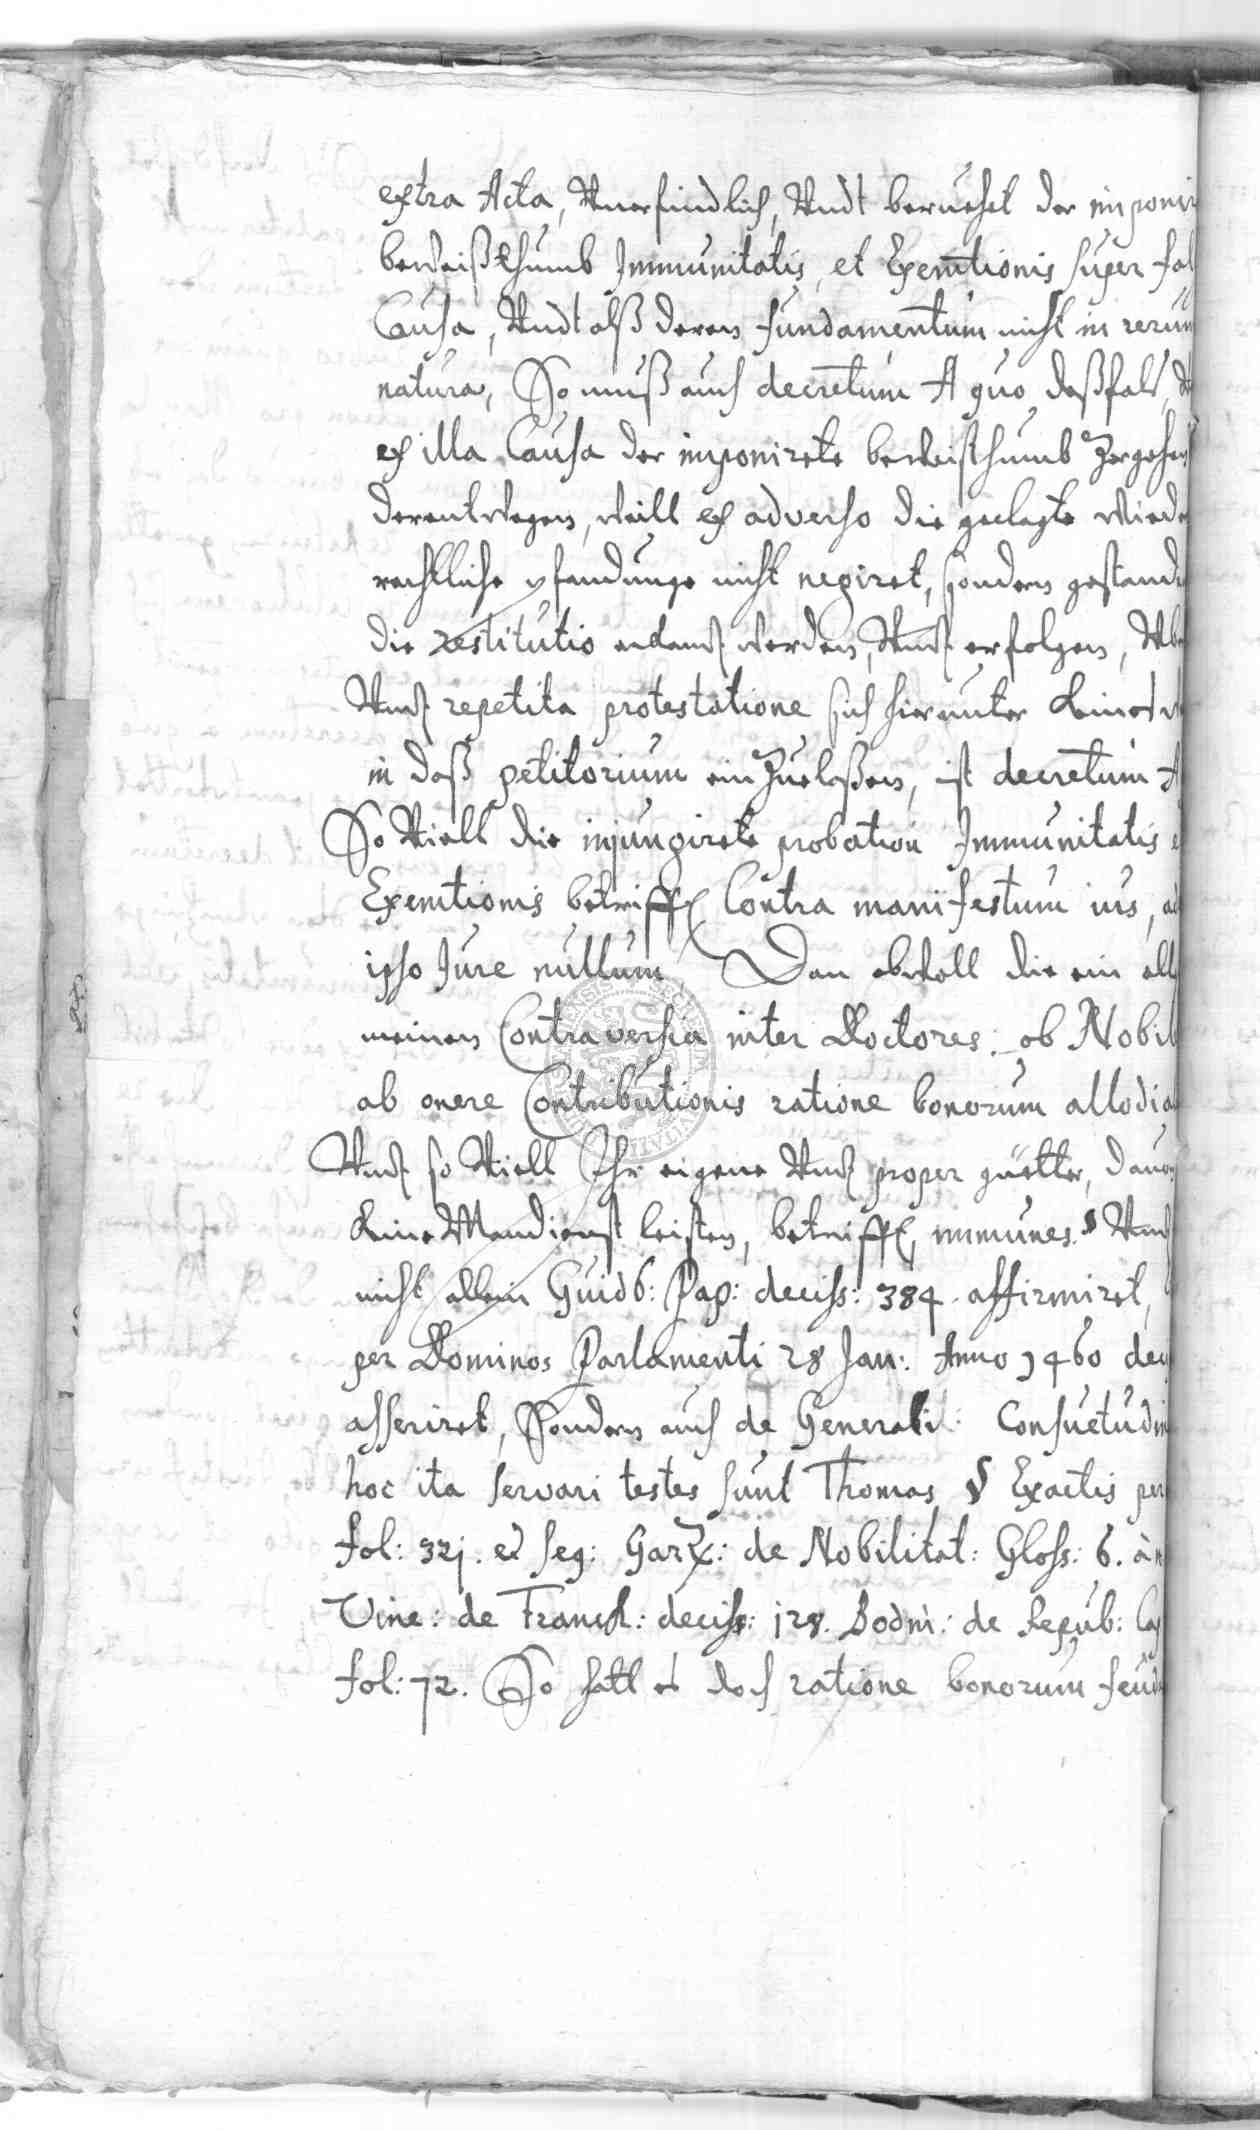 extra Acta, Unerfindlich, Undt beruehet der imponir
beweißthumb Immunitatis, et Exemtionis super fal
Causa, Undt alß deren fundamentum nicht in rerum
natura, So muß auch decretum A quo deßfals,
ex illa Causa der imponirete beweisthumb Zergehen
derentwegen, weill ex adverso die geclagte wieder
rechtliche pfandunge nicht negiret, sondern gestand
die restitutio erkandt werden, Undt erfolgen,
Undt repetita protestatione sich hierunter keines
in daß petitorium ein Zuelaßen, ist decretum A
So Viell die injungirete probation Immunitatis e
Exemtionis betrifft Contra manifestum ius, ac
ipso Jure nullum Dan obwoll die ein all
meinen Contraversia inter Doctores: ob Nobil
ab onere Contributionis ratione bonorum allodia
Undt so Viell Ihr eigene Undt proper güetter, davon
keine Mandienst leisten, betrifft, immunes. Undt
nicht allein Guid: Pap: deciss: 384. affirmiret,
per Dominos Parlamenti 28 Jan: Anno 1460 deci
asseriret, Sondern auch de Generali: Consuetudin
hoc ita servari testes sunt Thomas § Exactis per
fol: 321. et seq: Garz: de Nobilitat: Gloss: 6. à n
Vinc: de Franch: deciss: 128. Bodin: de Repub: Cap
fol: 72. So hatt es doch ratione bonorum feuda